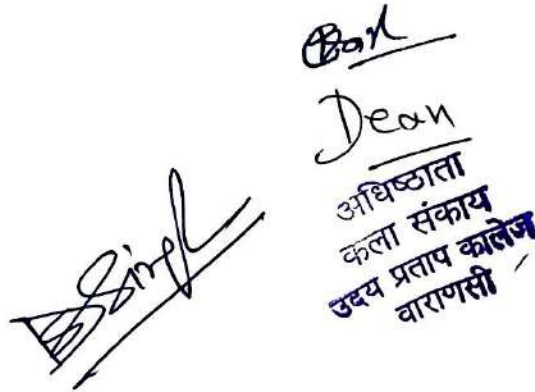 Dean
Singh
अधिष्ठाता
कला संकाय
उदय प्रताप कालेज
वाराणसी